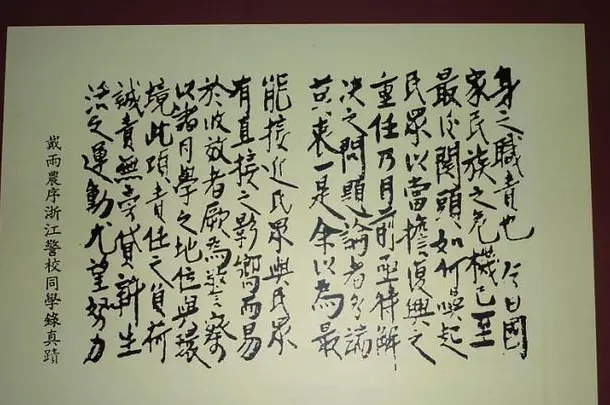 身之職責也 今日國
家民族之危機已至
最後関頭如何喚起
民眾以當擔復興之
重任乃目前亟待解
决之問題論者多端
莫衷一是余以為最
能接近民眾與民眾
有直接之影嚮而易
於收效者厥為警察
以諸同學之地位與環
境此項責任之負荷
誠責無旁貸新生
活之運動尤望努力
戴雨農序浙江警校同學錄真蹟